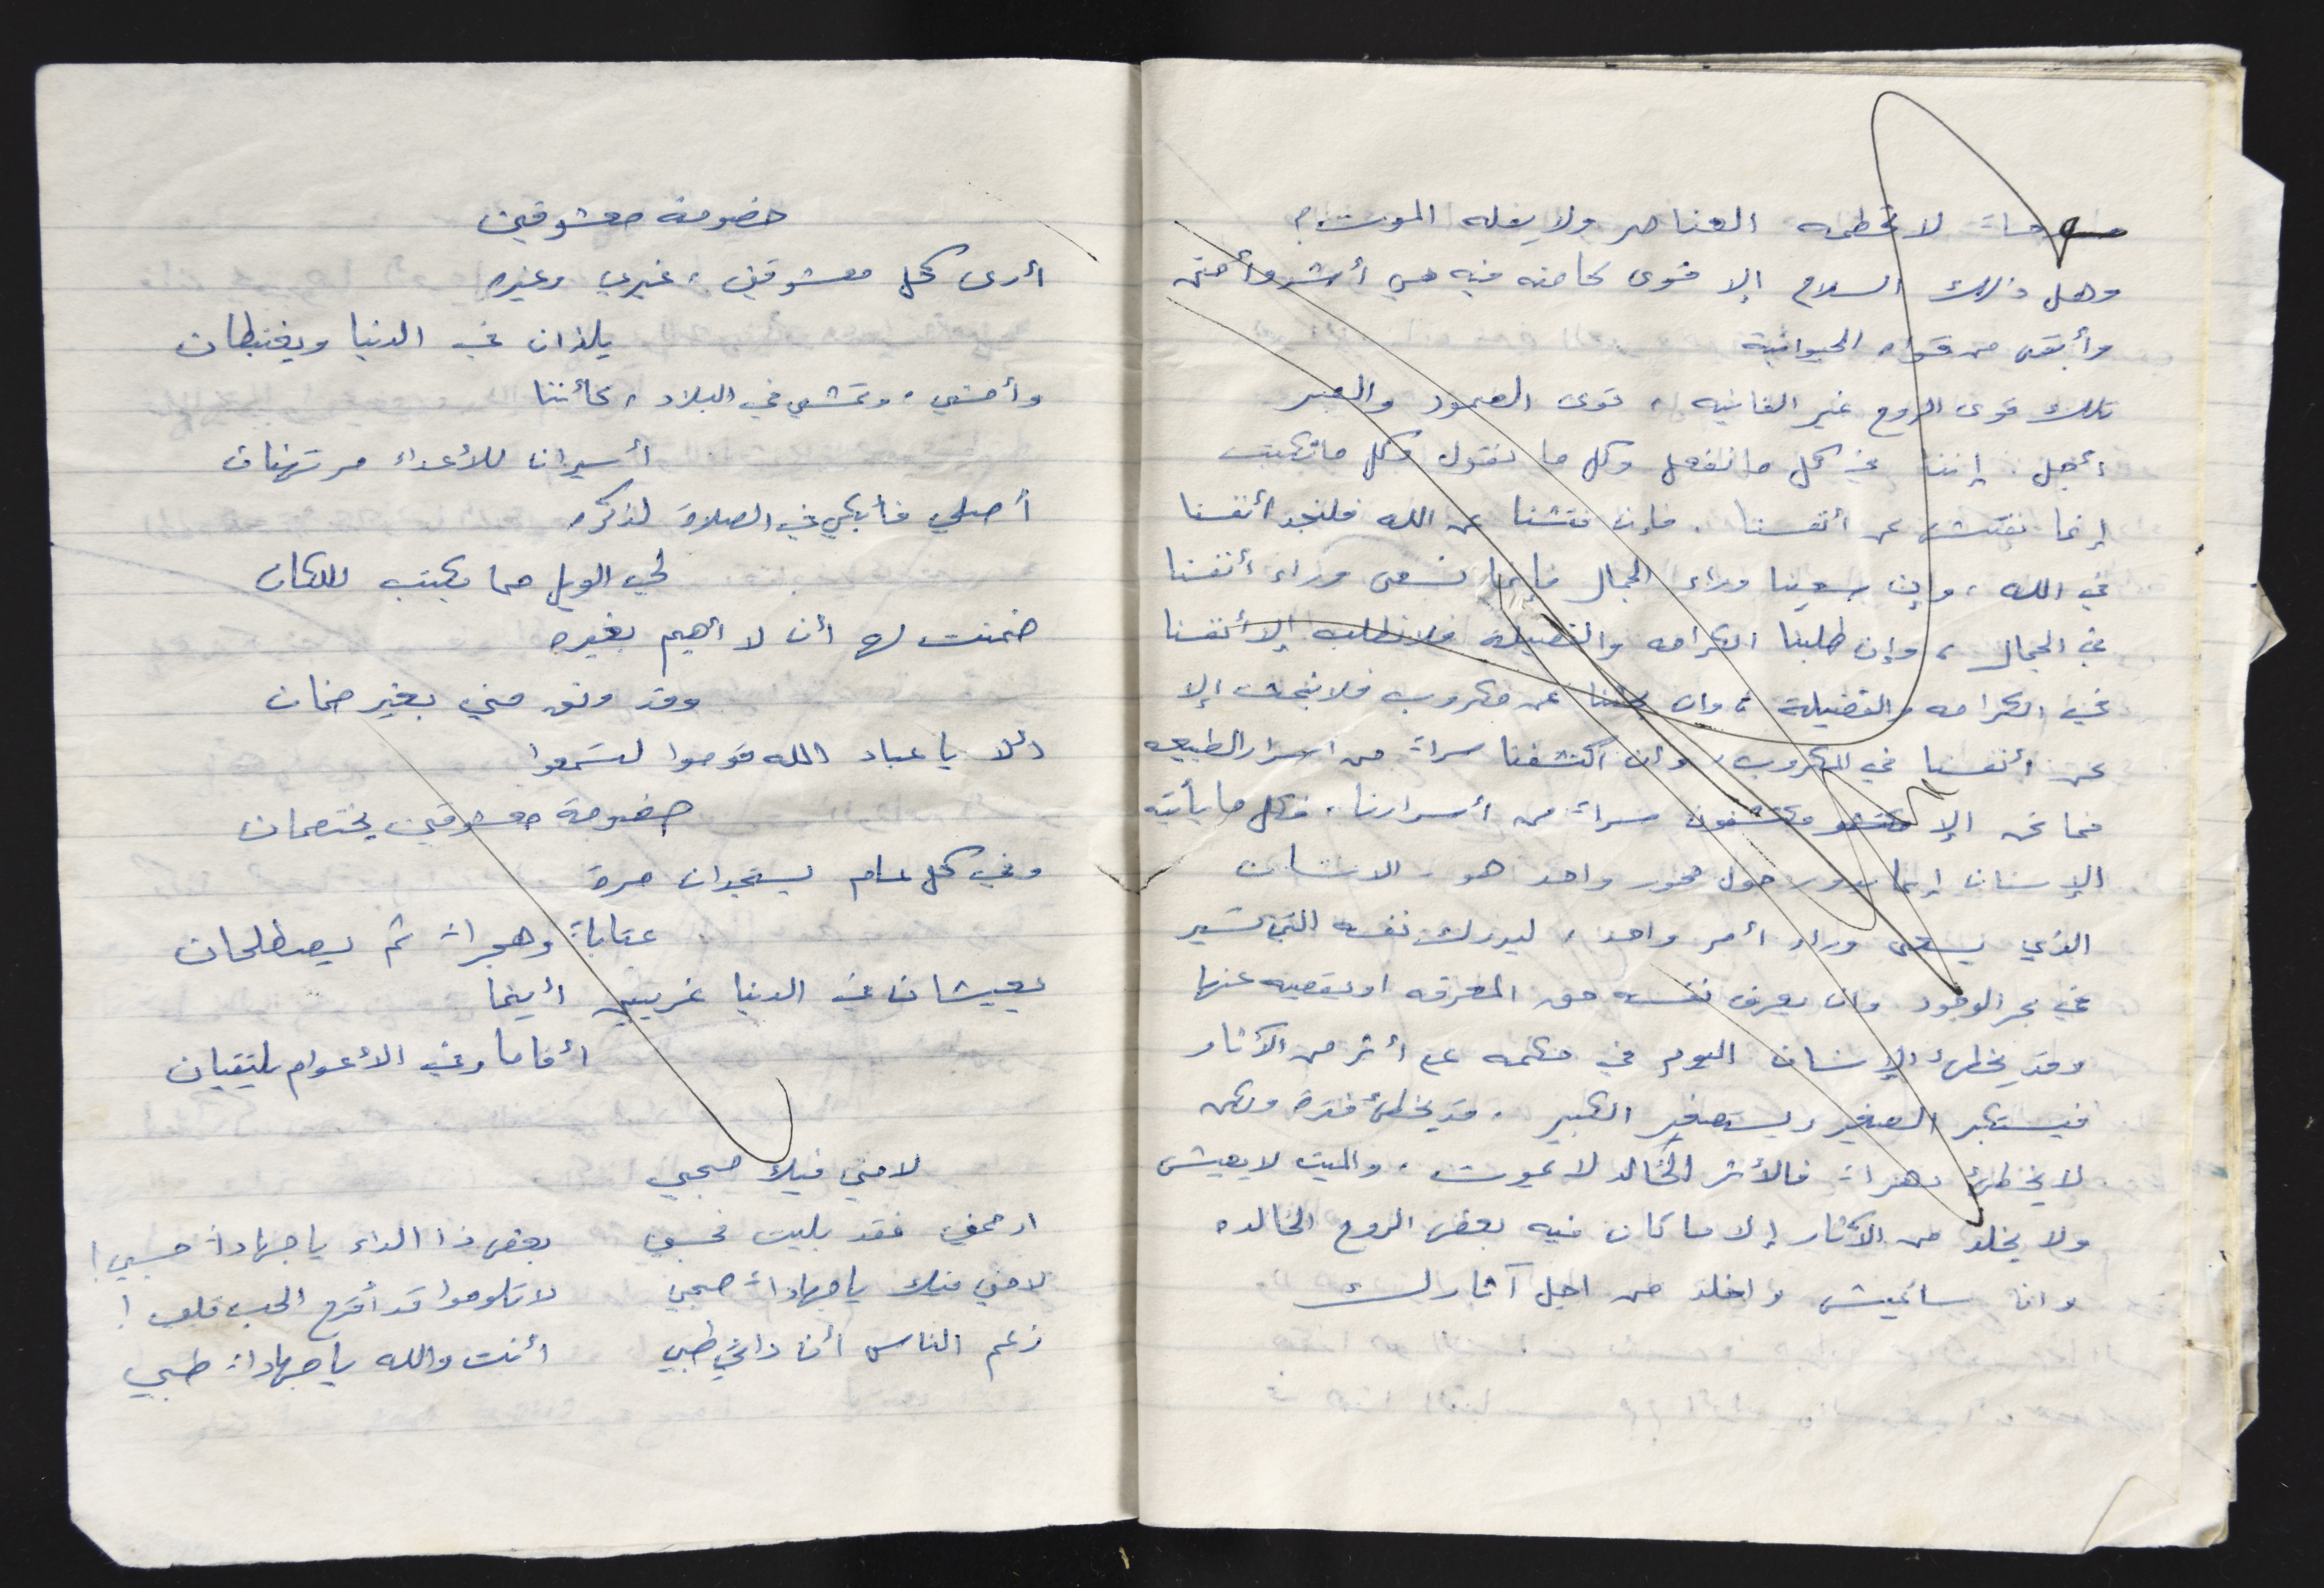 لا تحطمه العناصر ولا يعله الموت؟
وهل ذلك السلام إلا قوى كامنه فيه هي أشد وأمتن
وأبقى من قواه الحيوانية
تلك قوى الروح غير الفانيه ، قوى الصمود والصبر
أجل . إننا في كل ما نفعل وكل ما نقول وكل ما نكتب
إنما نفتش عن أنفسنا . فإن فتشنا عن الله فلنجد أنفسنا
في الله ، وإن سعينا وراء الجمال فإنما نسعى وراء أنفسنا
في الجمال ، وإن طلبنا الكرامه والفضيلة فلا نطلب إلا أنفسنا
في الكرامه والفضيلة ، وان بحثنا عن مكروب فلا نبحث إلا
عن أنفسنا في المكروب ، وان اكتشفنا سراً من اسرار الطبيعه
فما نحن إلا مكتشفون سراً من أسرارنا . فكل ما يأتيه
الإنسان إنما يدور حول محور واحد هو . الانسان
الذي يسعى وراء أمر واحد ، ليدرك نفسه التي تسير
في بحر الوجود وان يعرف نفسه حق المعرفه او يقصيه عنها
وقد يخطئ الإنسان اليوم في حكمه على أثر من الآثار
فيستكبر الصغير ويستصغر الكبير . قد يخطئ فترة ولكن
لا يخطئ دهراً فالأثر الخالد لا يموت . والميت لا يعيش
ولا يخلد من الآثار إلا ما كان فيه بعض الروح الخالده
وانا سأعيش واخلد من اجل آثارك
خصومة معشوقين
أرى كل معشوقين ، غيري وغيره
يلذان في الدنيا ويغتبطان
وأمشي . وتمشي في البلاد ، كأننا
أسيران للأعداء مرتهنان
أصلي فأبكي في الصلاة لذكره
لي الويل مما يكتب الملكان
ضمنت له أن لا أهيم بغيره
وقد وثق مني بغير ضمان
ألا يا عباد الله قوموا لتسمعوا
خصومة معشوقين يختصمان
وفي كل عام يستجدان مرة
عتاباً وهجراً ثم يصطلحان
يعيشان في الدنيا غريبين أينما
أقاما وفي الأعوام يلتقيان
لامني فيك صحبي
ارحمني فقد بليت فحسبي بعض ذا الداء يا جهاداً حسبي !
لامني فيك يا جهاداً صحبي لا تلوموا قد أقرح الحب قلبي !
زعم الناس أن دائي طبي أنت والله يا جهاداً طبي